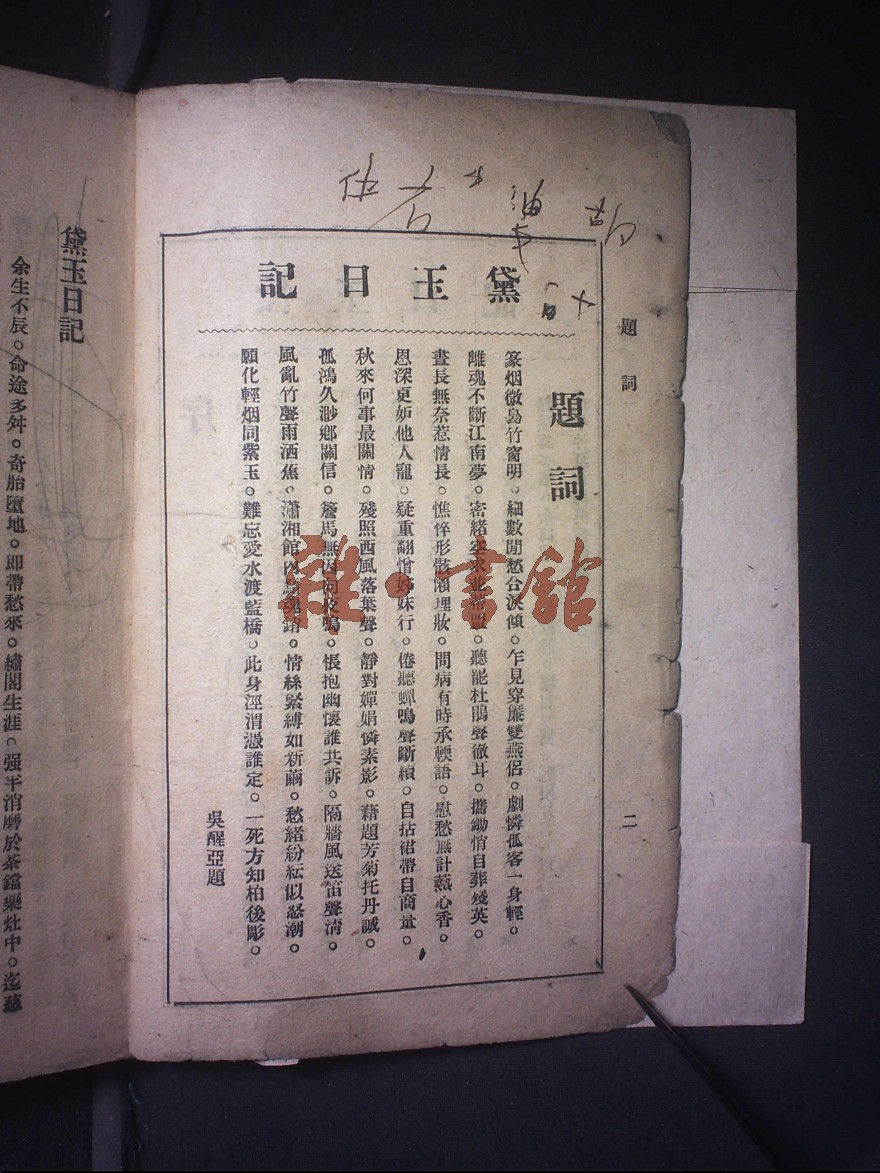 題詞
二
黛玉日記
題詞
篆烟微裊竹窗明。細數閒愁合淚傾。乍見穿簾雙燕侶。劇憐孤客一身輕。
離魂不斷江南夢。密緒空求並蒂盟。聽罷杜鵑聲徹耳。攜鋤悄自葬殘英。
晝長無奈惹情長。憔悴形骸懶理妝。問病有時承輭語。慰愁無計爇心香。
恩深更妬他人寵。疑重翻憎姊妹行。倦聽蟬鳴聲斷續。自拈裙帶自商量。
秋來何事最關情。殘照西風落葉聲。靜對嬋娟憐素影。藉題芳菊托丹誠。
孤鴻久渺鄉關信。簷馬無因向夜鳴。悵抱幽懷誰共訴。隔牆風送笛聲淸。
風亂竹聲雨洒焦。瀟湘館內黯魂銷。情絲緊縛如新繭。愁緒紛紜似怒潮。
願化輕烟同紫玉。難忘愛水渡藍橋。此身涇渭憑誰定。一死方知柏後彫。
吳醒亞題
黛玉日記
余生不辰。命途多舛。奇胎墮地。即帶愁來。繡閣生涯。强半消磨於茶鐺藥灶中。迄慈
雜·書館